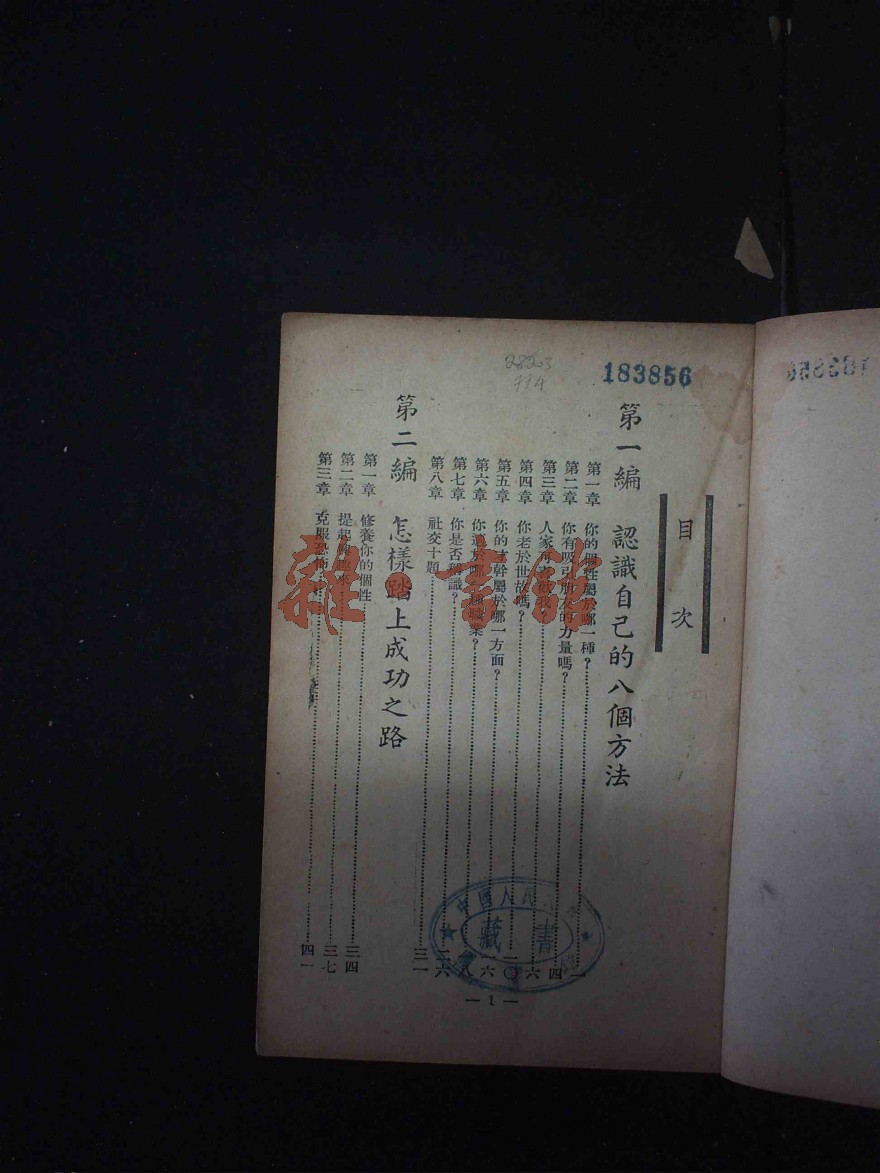 183856
目次
第一編 認識自己的八個方法
第一章 你的個性屬於哪一種?
第二章 你有吸引朋友的力量嗎? 四
第三章 人家 六
第四章 你老於世故嗎?
第五章 你的才幹屬於哪一方面? 六
第六章 你適於哪 職業? 八
第七章 你是否 識? 六
第八章 社交十題 三一
第二編 怎樣踏上成功之路
第一章 修養你的個性 三四
第二章 提起 來 三七
第三章 克服恐怖 四一
— 1 —
中國人民
藏書
雜·書館